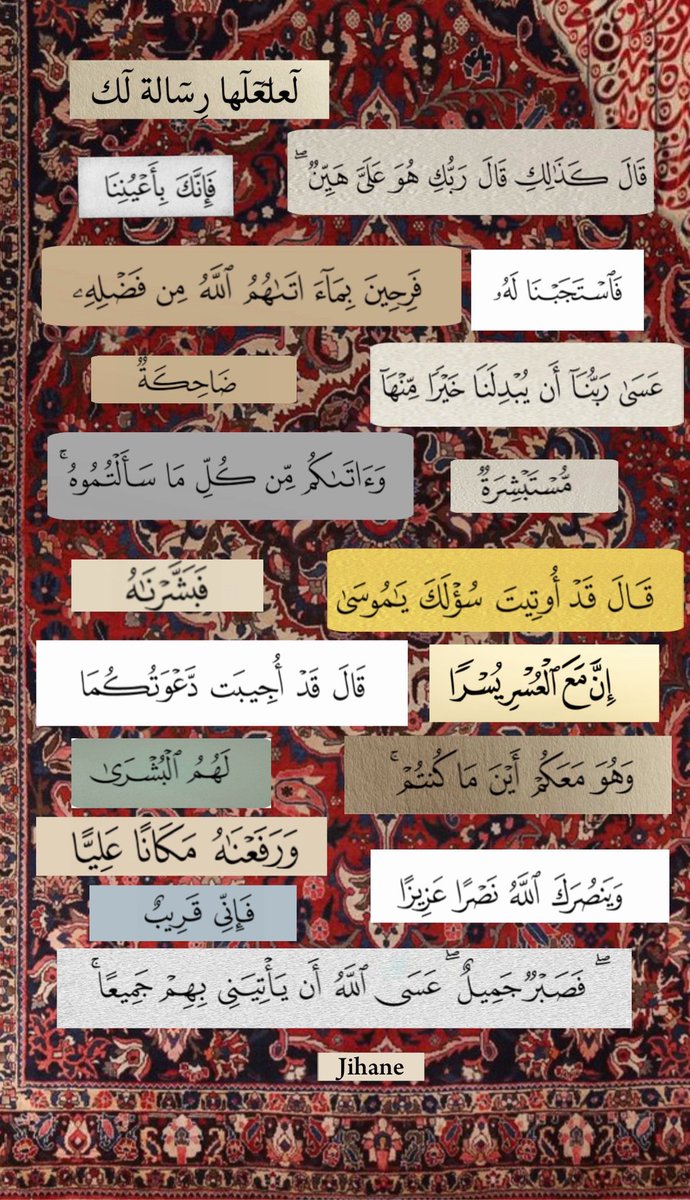 لَعلعَلَها رِسَالة لَك
قَالَ كَذَٰلِكِ قَالَ رَبُّكِ هُوَ عَلَىَّ هَيِّنٌ ۖ
فَإِنَّكَ بِأَعْيُنِنَا
فَرِحِينَ بِمَآءَ اتَىٰهُمُ ٱللَّهُ مِن فَضْلِهِۦ
فَٱسْتَجَبْنَا لَهُۥ
ضَاحِكَةٌ
عَسَىٰ رَبُّنَآ أَن يُبْدِلَنَا خَيْرًا مِّنْهَآ
وَءَاتَىٰكُم مِّن كُلِّ مَا سَأَلْتُمُوهُ ۚ
مُّسْتَبْشِرَةٌ
فَبَشَّرْنَٰهُ
قَالَ قَدْ أُوتِيتَ سُؤْلَكَ يَٰمُوسَىٰ
قَالَ قَدْ أُجِيبَت دَّعْوَتُكُمَا
إِنَّ مَعَ ٱلْعُسْرِ يُسْرًا
لَهُمُ ٱلْبُشْرَىٰ
وَهُوَ مَعَكُمْ أَيْنَ مَا كُنتُمْ ۚ
وَرَفَعْنَٰهُ مَكَانًا عَلِيًّا
وَيَنصُرَكَ ٱللَّهُ نَصْرًا عَزِيزًا
فَإِنِّى قَرِيبٌ
ۖ فَصَبْرٌ جَمِيلٌ ۖ عَسَى ٱللَّهُ أَن يَأْتِيَنِى بِهِمْ جَمِيعًا ۚ
Jihane